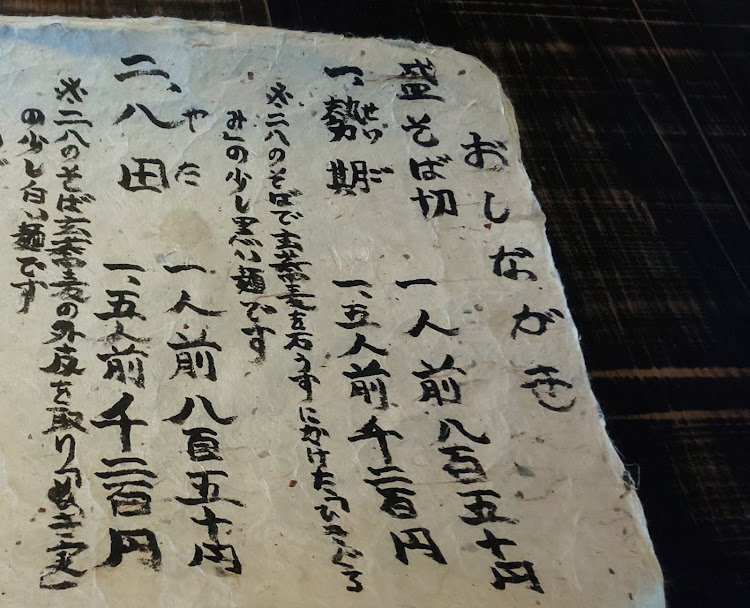 おしながき
盛そば切 一人前八百五十円
一、勢期 一、五人前千二百円
せいご
※二八のそばで玄蕎麦を石うすにかけた「ひきぐる
み」の少し黒い麺です
やた 一人前八百五十円
二、八田 一、五人前千二百円
※二八のそば玄蕎麦の外皮を取り「ぬき実」
の少し白い麺です